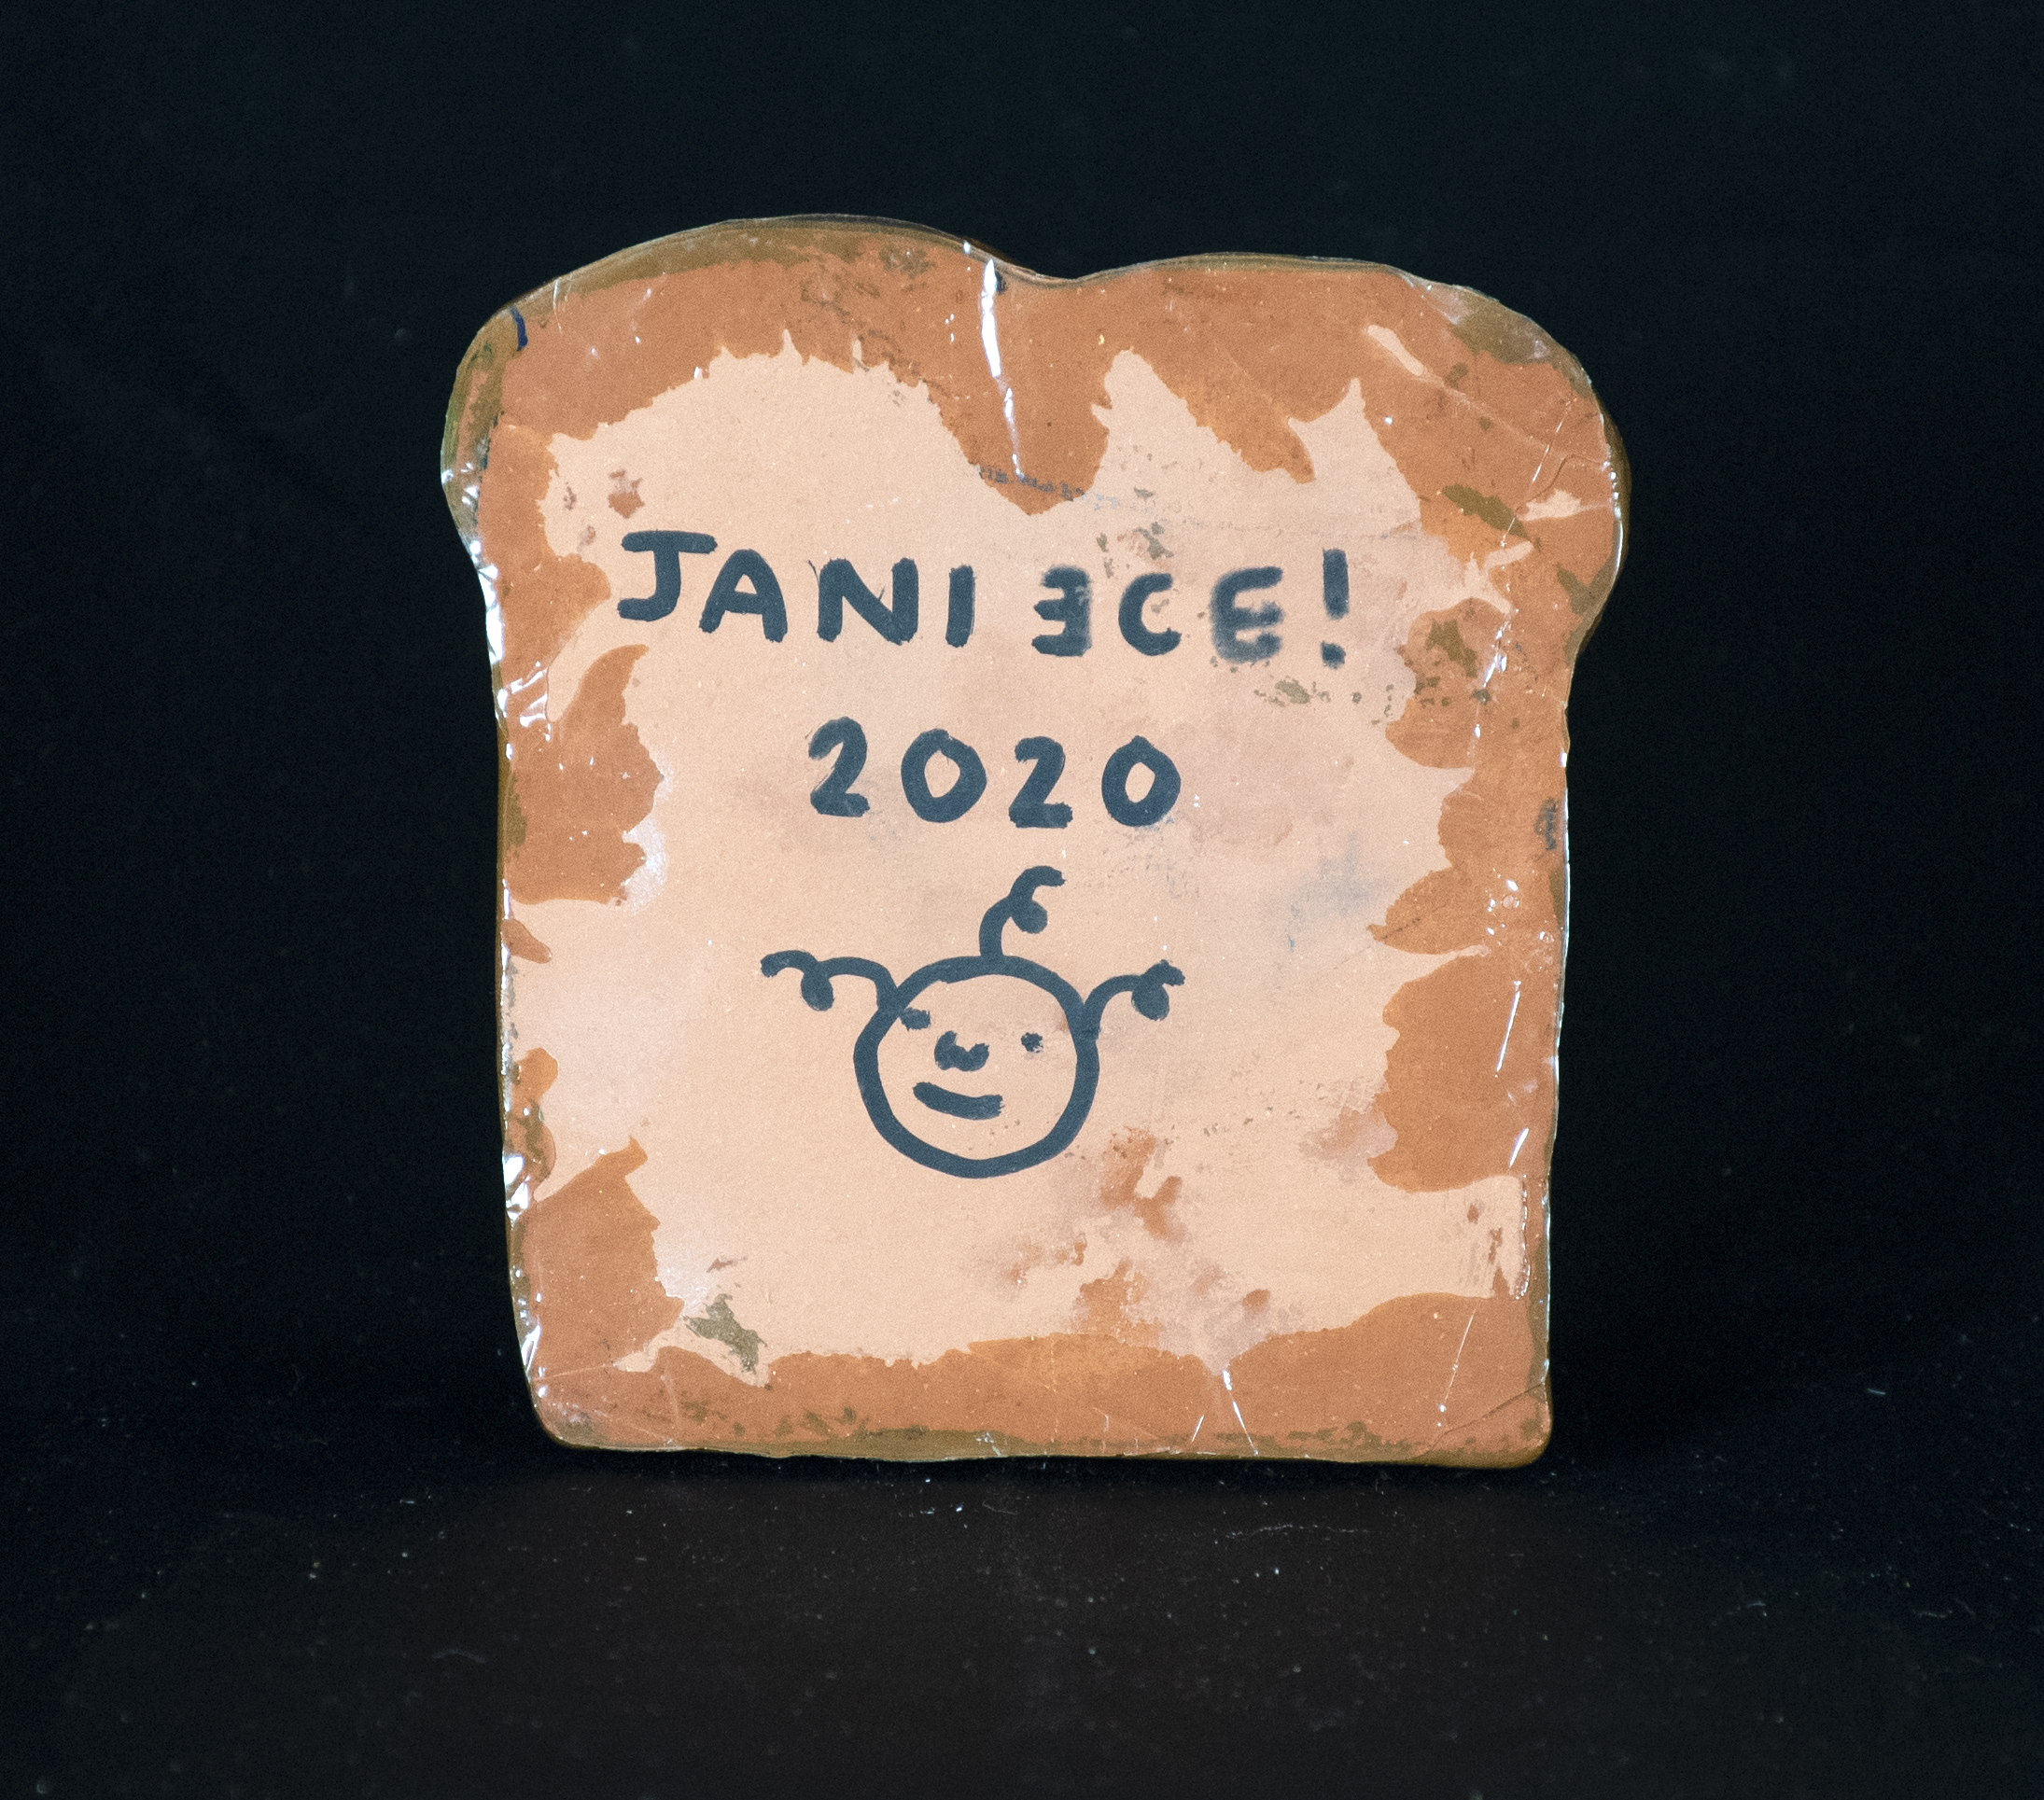 JANIƎCE!
2020